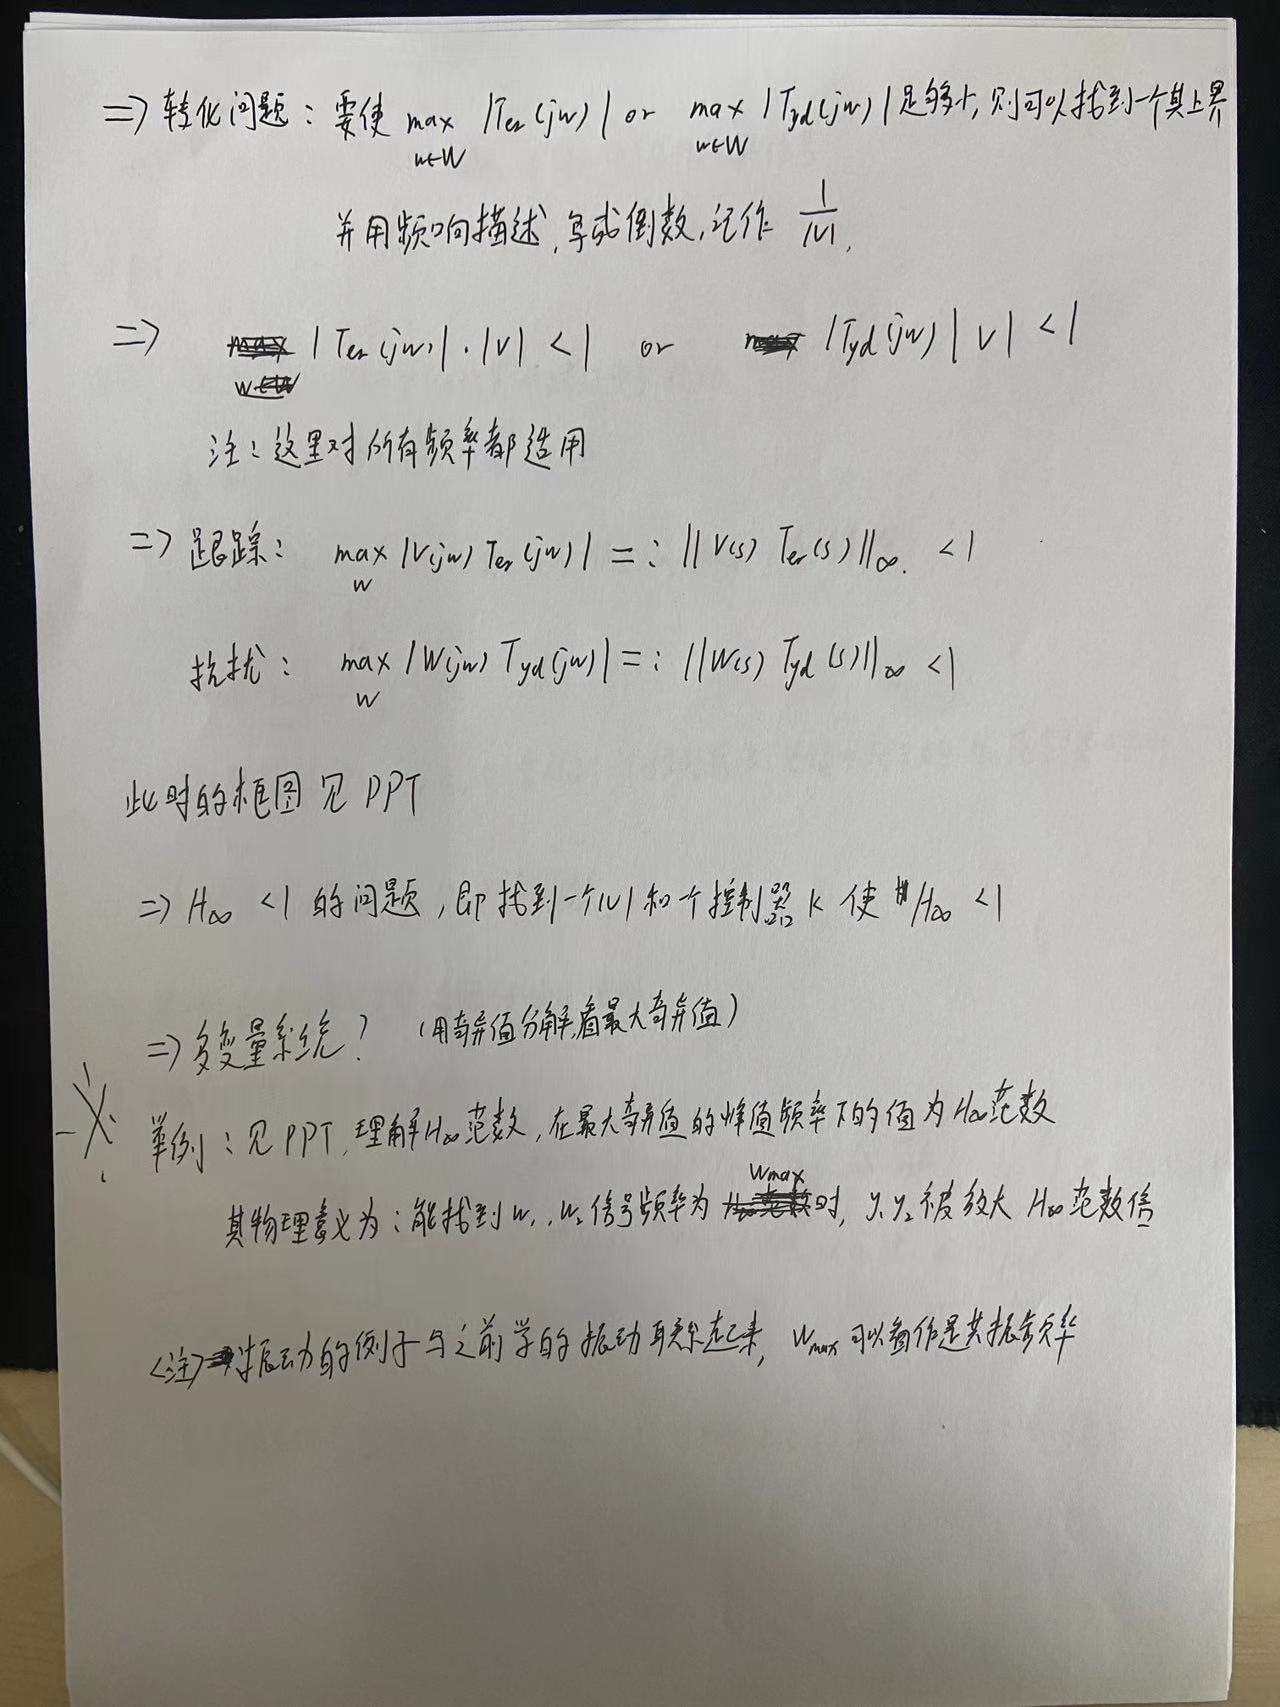 => 转化问题：要使 max |Ter(jw)| or max |Tyd(jw)| 足够小, 则可以找到一个其上界
w∈W w∈W
并用频响描述, 写成倒数, 记作 1/|V|.
=> |Ter(jw)|·|V| <1 or |Tyd(jw)| V| <1
注：这里对所有频率都适用
=> 跟踪： max |V(jw) Ter(jw)| =: ||V(s) Ter(s)||∞. <1
w
抗扰： max |W(jw) Tyd(jw)| =: ||W(s) Tyd(s)||∞ <1
w
此时的框图见PPT
=> H∞ <1 的问题, 即找到一个|V| 和一个控制器 K 使 H∞ <1
=> 多变量系统? (用奇异值分解,看最大奇异值)
举例：见PPT, 理解H∞范数, 在最大奇异值的峰值频率下的值为H∞范数
其物理意义为：能找到 w1, w2 信号频率为 Wmax 时, y1 y2 被放大 H∞范数倍
<注> 振动的例子与之前学的振动联系起来, Wmax 可以看作是共振频率